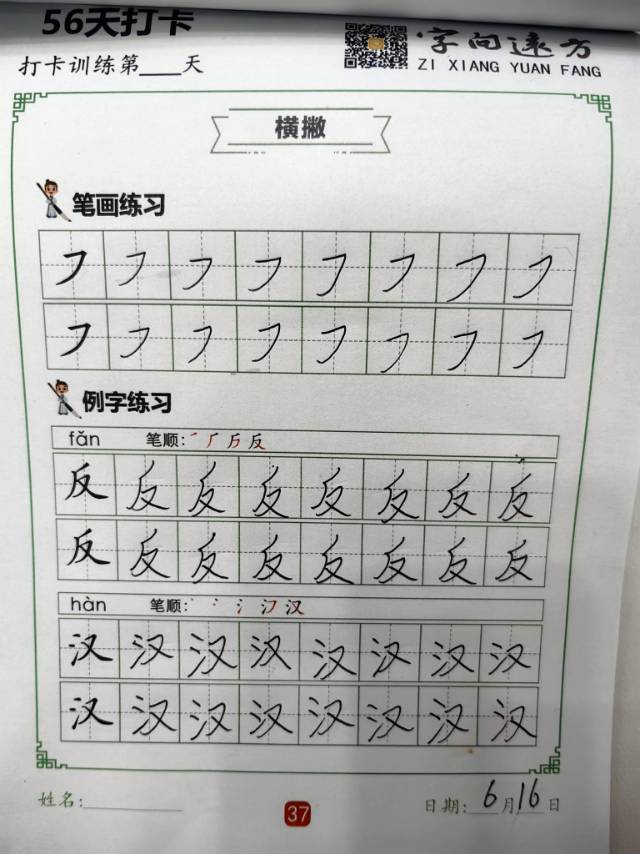 56天打卡
字向远方
打卡训练第___天
ZI XIANG YUAN FANG
横撇
笔画练习
㇇ ㇇ ㇇ ㇇ ㇇ ㇇ ㇇ ㇇
㇇ ㇇ ㇇ ㇇ ㇇ ㇇ ㇇ ㇇
例字练习
fǎn 笔顺: ㇒ 厂 反
反 反 反 反 反 反 反 反
反 反 反 反 反 反 反 反
hàn 笔顺: 丶 冫 氵 汉
汉 汉 汉 汉 汉 汉 汉 汉
汉 汉 汉 汉 汉 汉 汉 汉
姓名:
37
日期: 6月16日